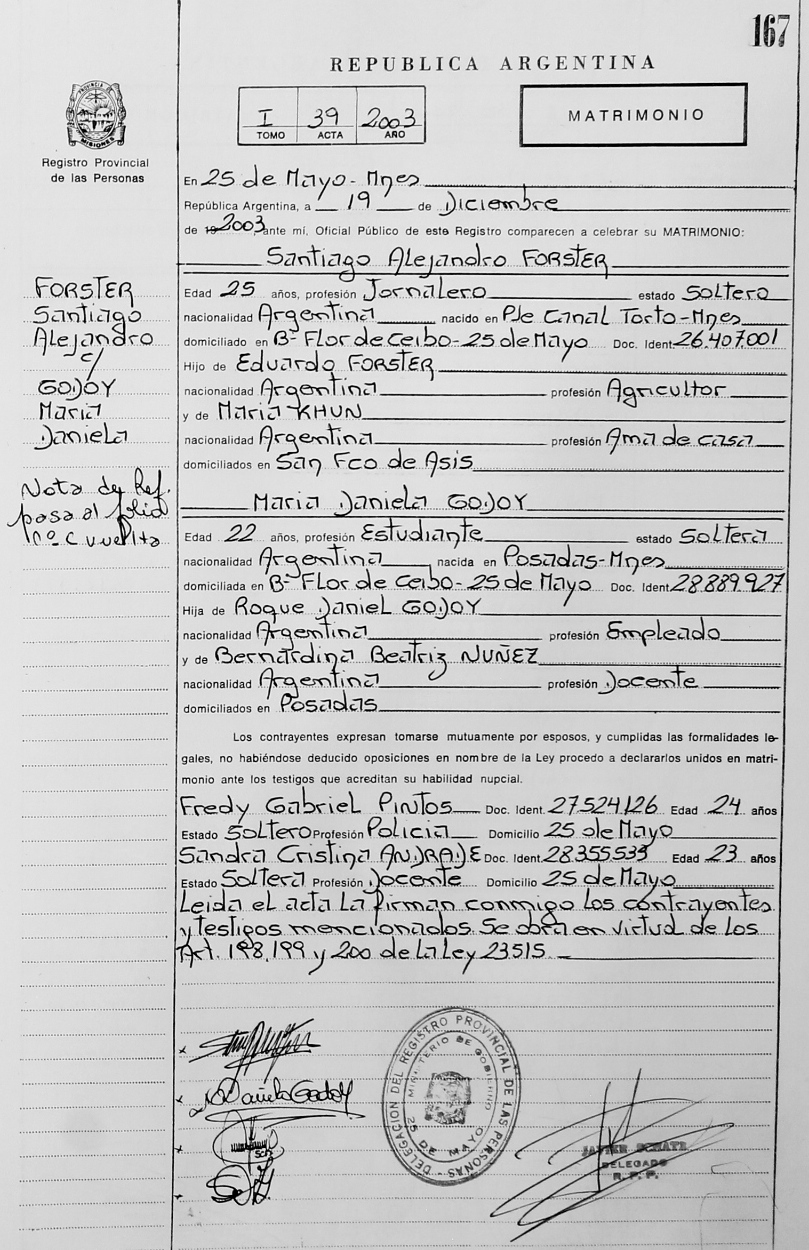 167
REPUBLICA ARGENTINA
PROVINCIA DE MISIONES
Registro Provincial
de las Personas
I 39 2003
TOMO ACTA AÑO
MATRIMONIO
En 25 de Mayo - Mnes
República Argentina, a 19 de Diciembre
de 2003, ante mí, Oficial Público de este Registro comparecen a celebrar su MATRIMONIO:
Santiago Alejandro FORSTER
FORSTER
Santiago
Alejandro
c/
GODOY
Maria
Daniela
Nota de Ref.
pasa al folio
Edad 25 años, profesión Jornalero estado Soltero
nacionalidad Argentina nacido en Pje Canal Torto-Mnes
domiciliado en Bº Flor de Ceibo - 25 de Mayo Doc. Ident. 26.407.001
Hijo de Eduardo FORSTER
nacionalidad Argentina profesión Agricultor
y de Maria KHUN
nacionalidad Argentina profesión Ama de casa
domiciliados en San Fco de Asis
Maria Daniela GODOY
Edad 22 años, profesión Estudiante estado Soltera
nacionalidad Argentina nacida en Posadas-Mnes
domiciliada en Bº Flor de Ceibo - 25 de Mayo Doc. Ident. 28.889.927
Hija de Roque Daniel GODOY
nacionalidad Argentina profesión Empleado
y de Bernardina Beatriz NUÑEZ
nacionalidad Argentina profesión Docente
domiciliados en Posadas
Los contrayentes expresan tomarse mutuamente por esposos, y cumplidas las formalidades le-
gales, no habiéndose deducido oposiciones en nombre de la Ley procedo a declararlos unidos en matri-
monio ante los testigos que acreditan su habilidad nupcial.
Fredy Gabriel PINTOS Doc. Ident. 27524126 Edad 24 años
Estado Soltero Profesión Policia Domicilio 25 de Mayo
Sandra Cristina ANDRADE Doc. Ident. 28.355.533 Edad 23 años
Estado Soltera Profesión Docente Domicilio 25 de Mayo
Leida el acta la firman conmigo los contrayentes
y testigos mencionados. Se obra en virtud de los
Art. 198, 199 y 200 de la Ley 23515
Daniela Godoy
DELEGACION DEL REGISTRO PROVINCIAL DE LAS PERSONAS
MINISTERIO DE GOBIERNO
25 DE MAYO
JAVIER
DELEGADO
R. P. P.